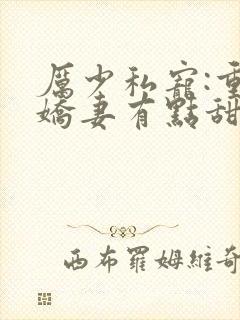 厲少私寵:重
嬌妻有點甜
西布羅姆維奇